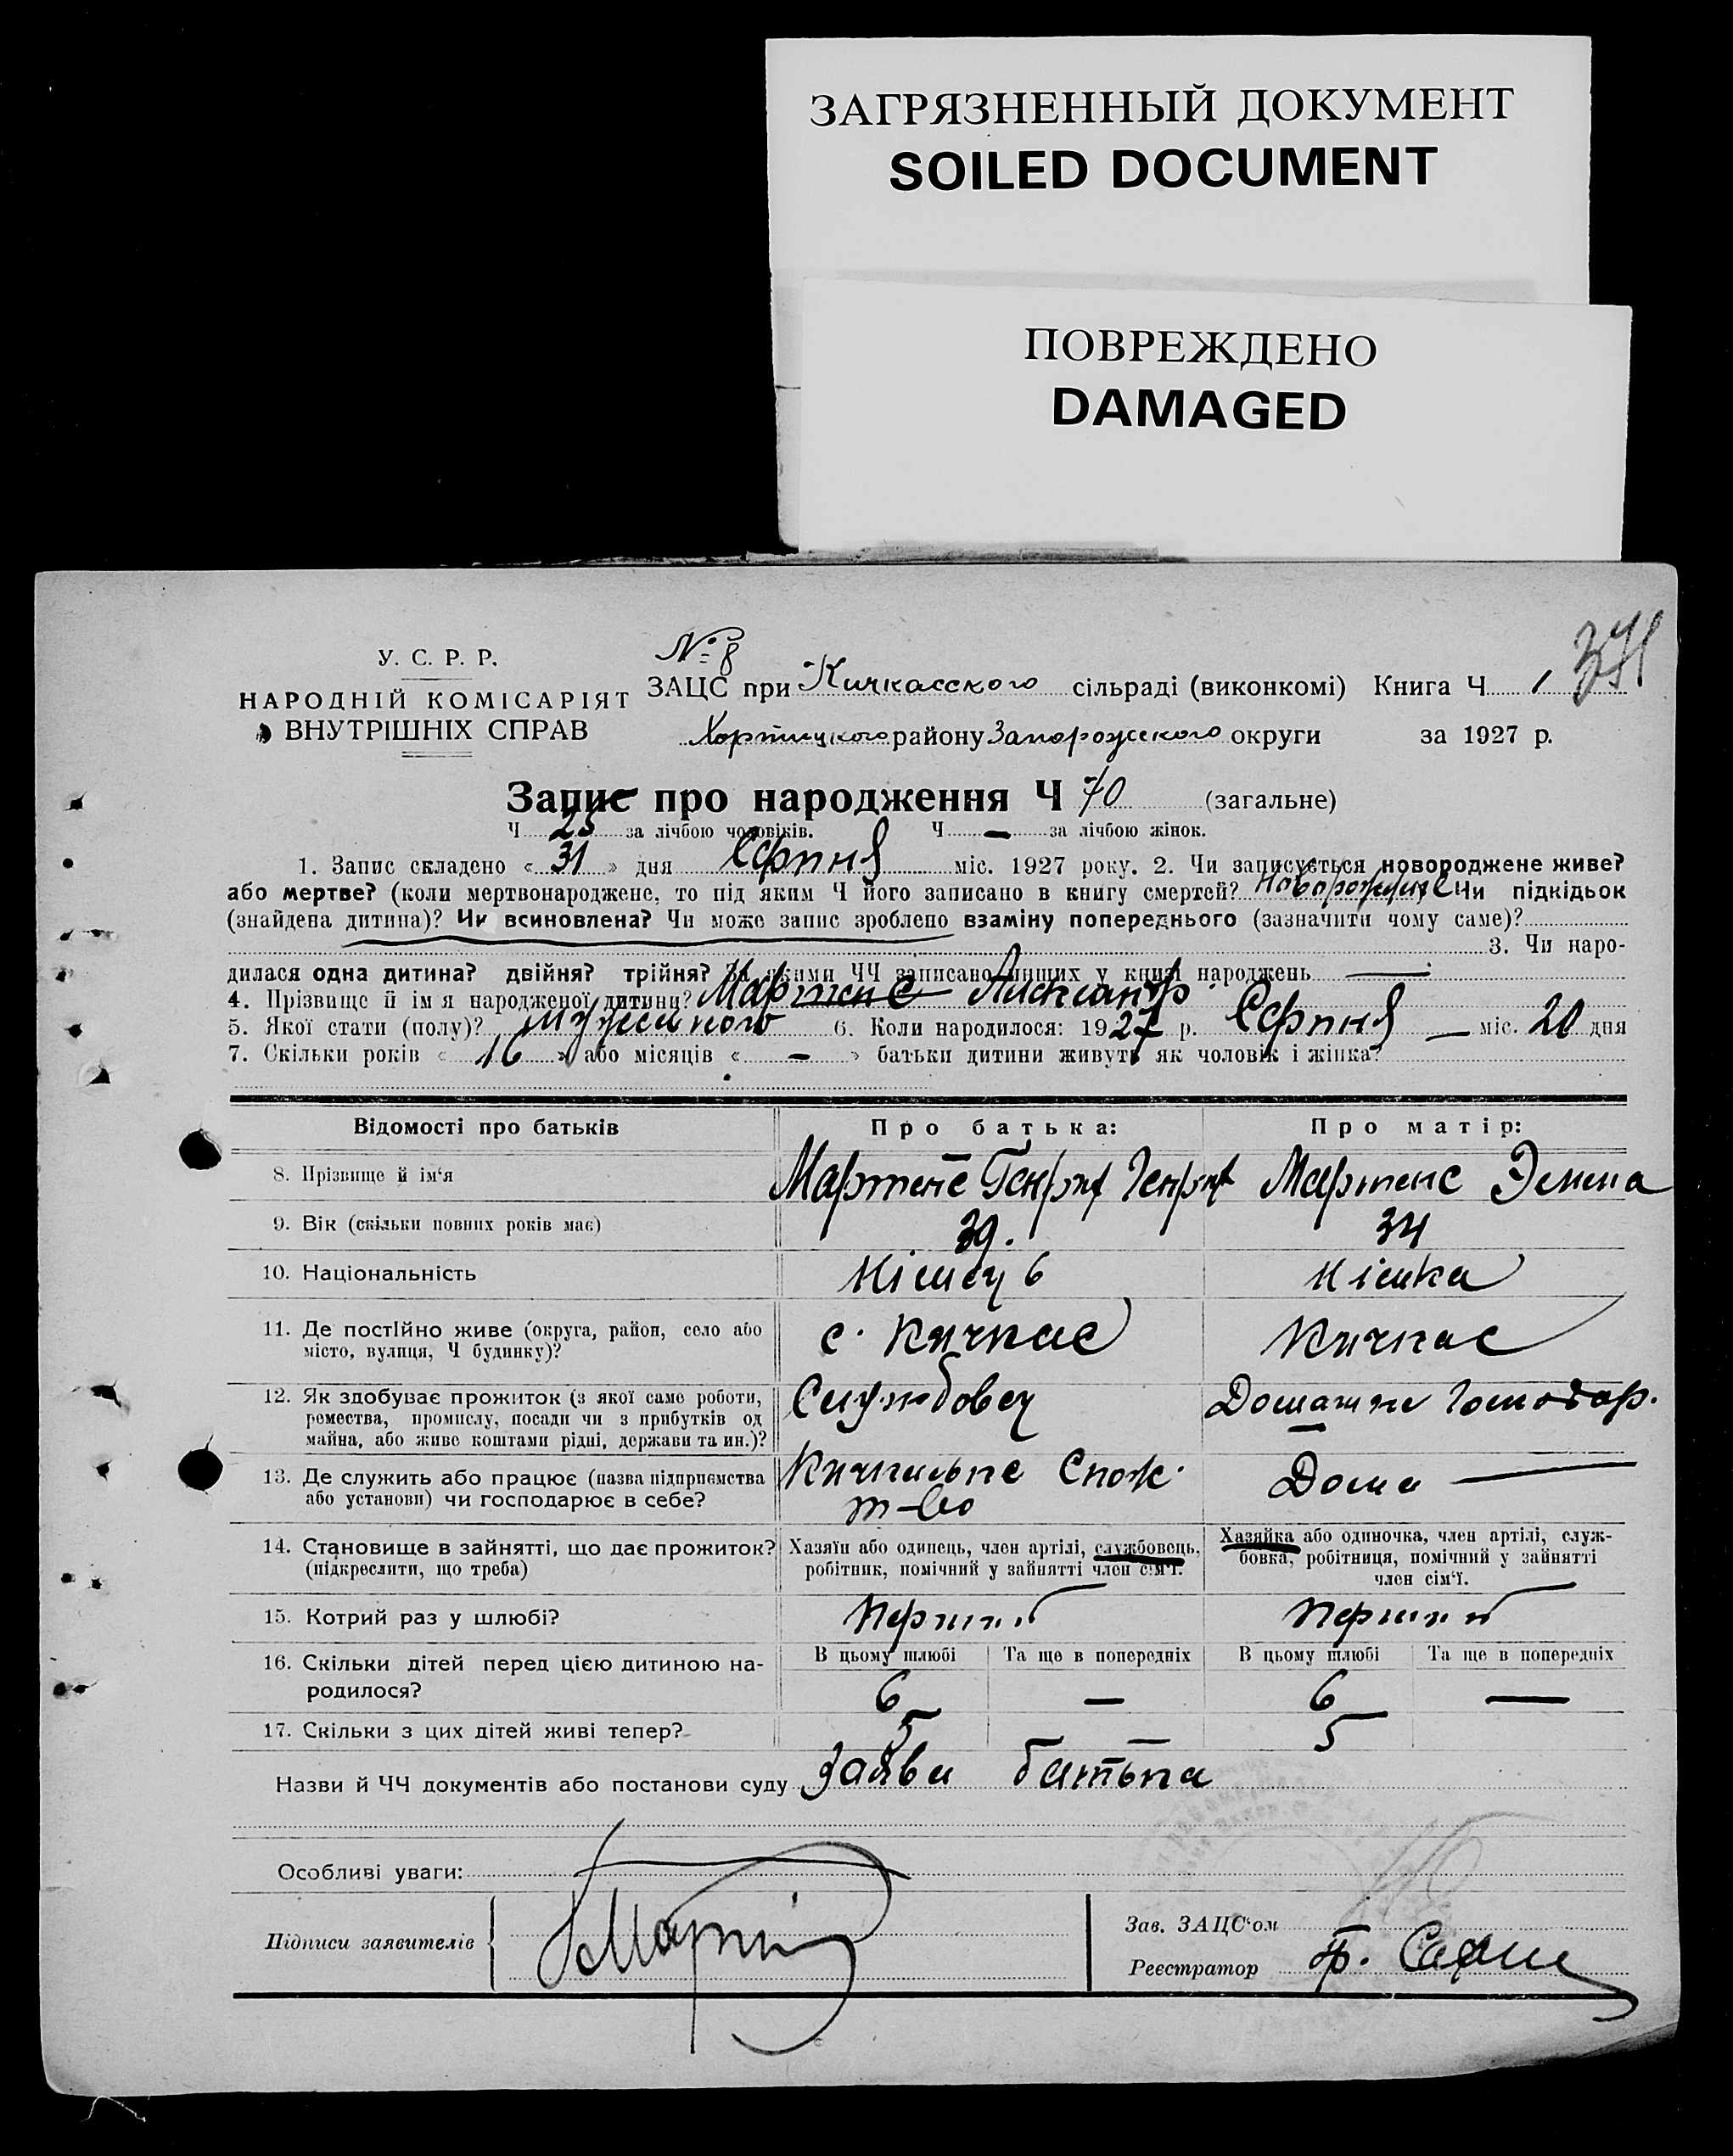 ЗАГРЯЗНЕННЫЙ ДОКУМЕНТ
SOILED DOCUMENT
ПОВРЕЖДЕНО
DAMAGED
№ 8
У. С. Р. Р.
НАРОДНІЙ КОМІСАРІЯТ
ВНУТРІШНІХ СПРАВ
ЗАЦС при Кичкасского сільраді (виконкомі) Книга Ч 1
Хортицкого району Запорожского округи за 1927 р.
Запис про народження Ч 70 (загальне)
Ч 25 за лічбою чоловіків. Ч — за лічбою жінок.
1. Запис складено « 31 » дня Серпня міс. 1927 року. 2. Чи записується новороджене живе?
або мертве? (коли мертвонароджене, то під яким Ч його записано в книгу смертей? Чи підкідьок
(знайдена дитина)? Чи всиновлена? Чи може запис зроблено взаміну попереднього (зазначити чому саме)?
3. Чи наро-
дилася одна дитина? двійня? трійня? За якими ЧЧ записано инших у книзі народжень —
4. Прізвище й ім я народженої дитини? Мартенс
5. Якої стати (полу)? 6. Коли народилося: 1927 р. Серпня — міс. 20 дня
7. Скільки років « 16 » або місяців « — » батьки дитини живуть як чоловік і жінка?
Відомості про батьків Про батька: Про матір:
8. Прізвище й ім‘я Мартенс Генрих Генрих Мартенс
9. Вік (скільки повних років має) 39. 34
10. Національність Німець Німка
11. Де постійно живе (округа, район, село або с. Кичкас Кичкас
місто, вулиця, Ч будинку)?
12. Як здобуває прожиток (з якої саме роботи, Службовец Домашне Господар.
ремества, промислу, посади чи з прибутків од
майна, або живе коштами рідні, держави та ин.)?
13. Де служить або працює (назва підприємства Спож. Дома —
або установи) чи господарює в себе? т-во
14. Становище в зайнятті, що дає прожиток? Хазяїн або одинець, член артілі, службовець, Хазяйка або одиночка, член артілі, служ-
(підкреслити, що треба) робітник, помічний у зайнятті член сім‘ї. бовка, робітниця, помічний у зайнятті
член сім‘ї.
15. Котрий раз у шлюбі? Перший Перший
16. Скільки дітей перед цією дитиною на- В цьому шлюбі Та ще в попередніх В цьому шлюбі Та ще в попередніх
родилося? 6 — 6 —
17. Скільки з цих дітей живі тепер? 5 — 5
Назви й ЧЧ документів або постанови суду Заява батька
Особливі уваги:
Підписи заявителів
Зав. ЗАЦС‘ом
Реєстратор